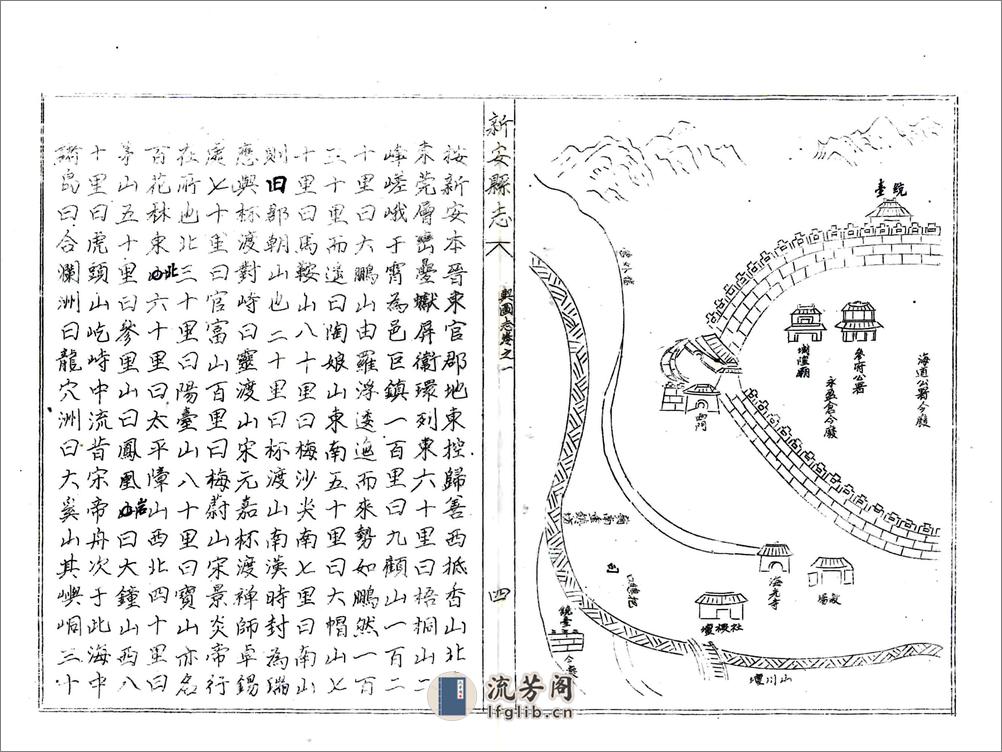 銃臺
海道公署今廢
參府公署
永盈倉今廢
城隍廟
西門
教場
海光寺
社稷壇
山川壇
銃臺
今廢
新安縣志
輿圖志卷之一
四
按新安本晉東官郡地東控歸善西抵香山北
東莞層巒疊巘屏衛環列東六十里曰梧桐山二
峰嵯峨干霄為邑巨鎮一百里曰九顧山一百二
十里曰大鵬山由羅浮逶迤而來勢如鵬然一百
三十里而遠曰陶娘山東南五十里曰大帽山七
十里曰馬鞍山八十里曰梅沙尖南七里曰南山
則曰郡朝山也二十里曰杯渡山南漢時封為瑞
應與杯渡對峙曰靈渡山宋元嘉杯渡禪師卓錫
處七十里曰官富山百里曰梅蔚山宋景炎帝行
在所也北三十里曰陽臺山八十里曰寶山亦名
百花林東北六十里曰太平障山西北四十里曰
茅山五十里曰參里山曰鳳凰岩曰大鐘山西八
十里曰虎頭山屹峙中流昔宋帝舟次于此海中
諸島曰合瀾洲曰龍穴洲曰大奚山其嶼峒三十
流芳阁
lfglib.cn